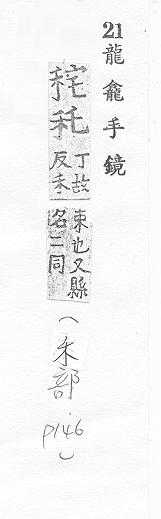 21龍龕手鏡
秺秅
丁故
反禾
束也又縣
名二同
(禾部
P146)